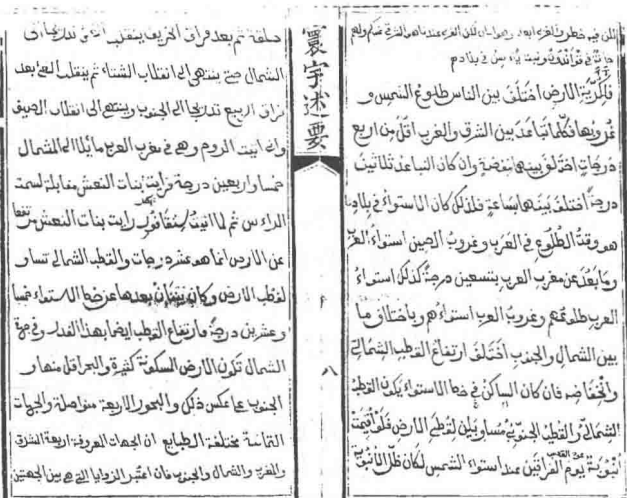 فالمرئية الارض اختلف بين الناس طلوع الشمس و
غروبها فكلما تباعد بين الشرق والغرب اقل من اربع
درجات اختلف بينها بنصفة وان كان التباعد ثلاثين
درجة اختلف بينها بساعة فلذلك كان الاستواء في بلادنا
هو وقت الطلوع في الغرب وغروب الصين استواء العرب
وما بعد عن مغرب العرب بتسعين درجة كذلك استواء
العرب طلوعهم وغروب العرب استواءهم وباختلاف ما
بين الشمال والجنوب اختلف ارتفاع القطب الشمالي
وانخفاضه فان كان الساكن في خط الاستواء يكون القطب
الشمالي والقطب الجنوبي مساويين لقطر الارض فلو اقيمت
انبوبة يوم الفراقين عند استواء الشمس لكان ظل الانبوبة
寰宇述要
八
حلقة ثم بعد فراق الخريف ينقلب الفئ تدريجا الى
الشمال حتى ينتهي الى انقلاب الشتاء ثم ينقلب الفئ بعد
فراق الربيع تدريجا الى الجنوب وينتهي الى انقلاب الصيف
واني اتيت الروم وهي في مغرب العرب مائلا الى الشمال
خمسا واربعين درجة فرايت بنات النعش مقابلة لسمت
الراس ثم لما اتيت رايت بنات النعش مرتفعا
عن الارض انما هو عشر درجات والقطب الشمالي تساو
لقطب الارض وكان بعدها عن خط الاستواء خمسا
وعشرين درجة فارتفاع القطب ايضا بهذا القدر وفي جهة
الشمال تكون الارض المسكونة كثيرة والبحر اقل منها و
الجنوب على عكس ذلك والبحور الاربعة متواصلة والجهات
الثمانية مختلفة الطبايع ان الجهات المعروفة اربعة الشرق
والمغرب والشمال والجنوب فان اعتبر الزوايا التي هي بين الجهتين